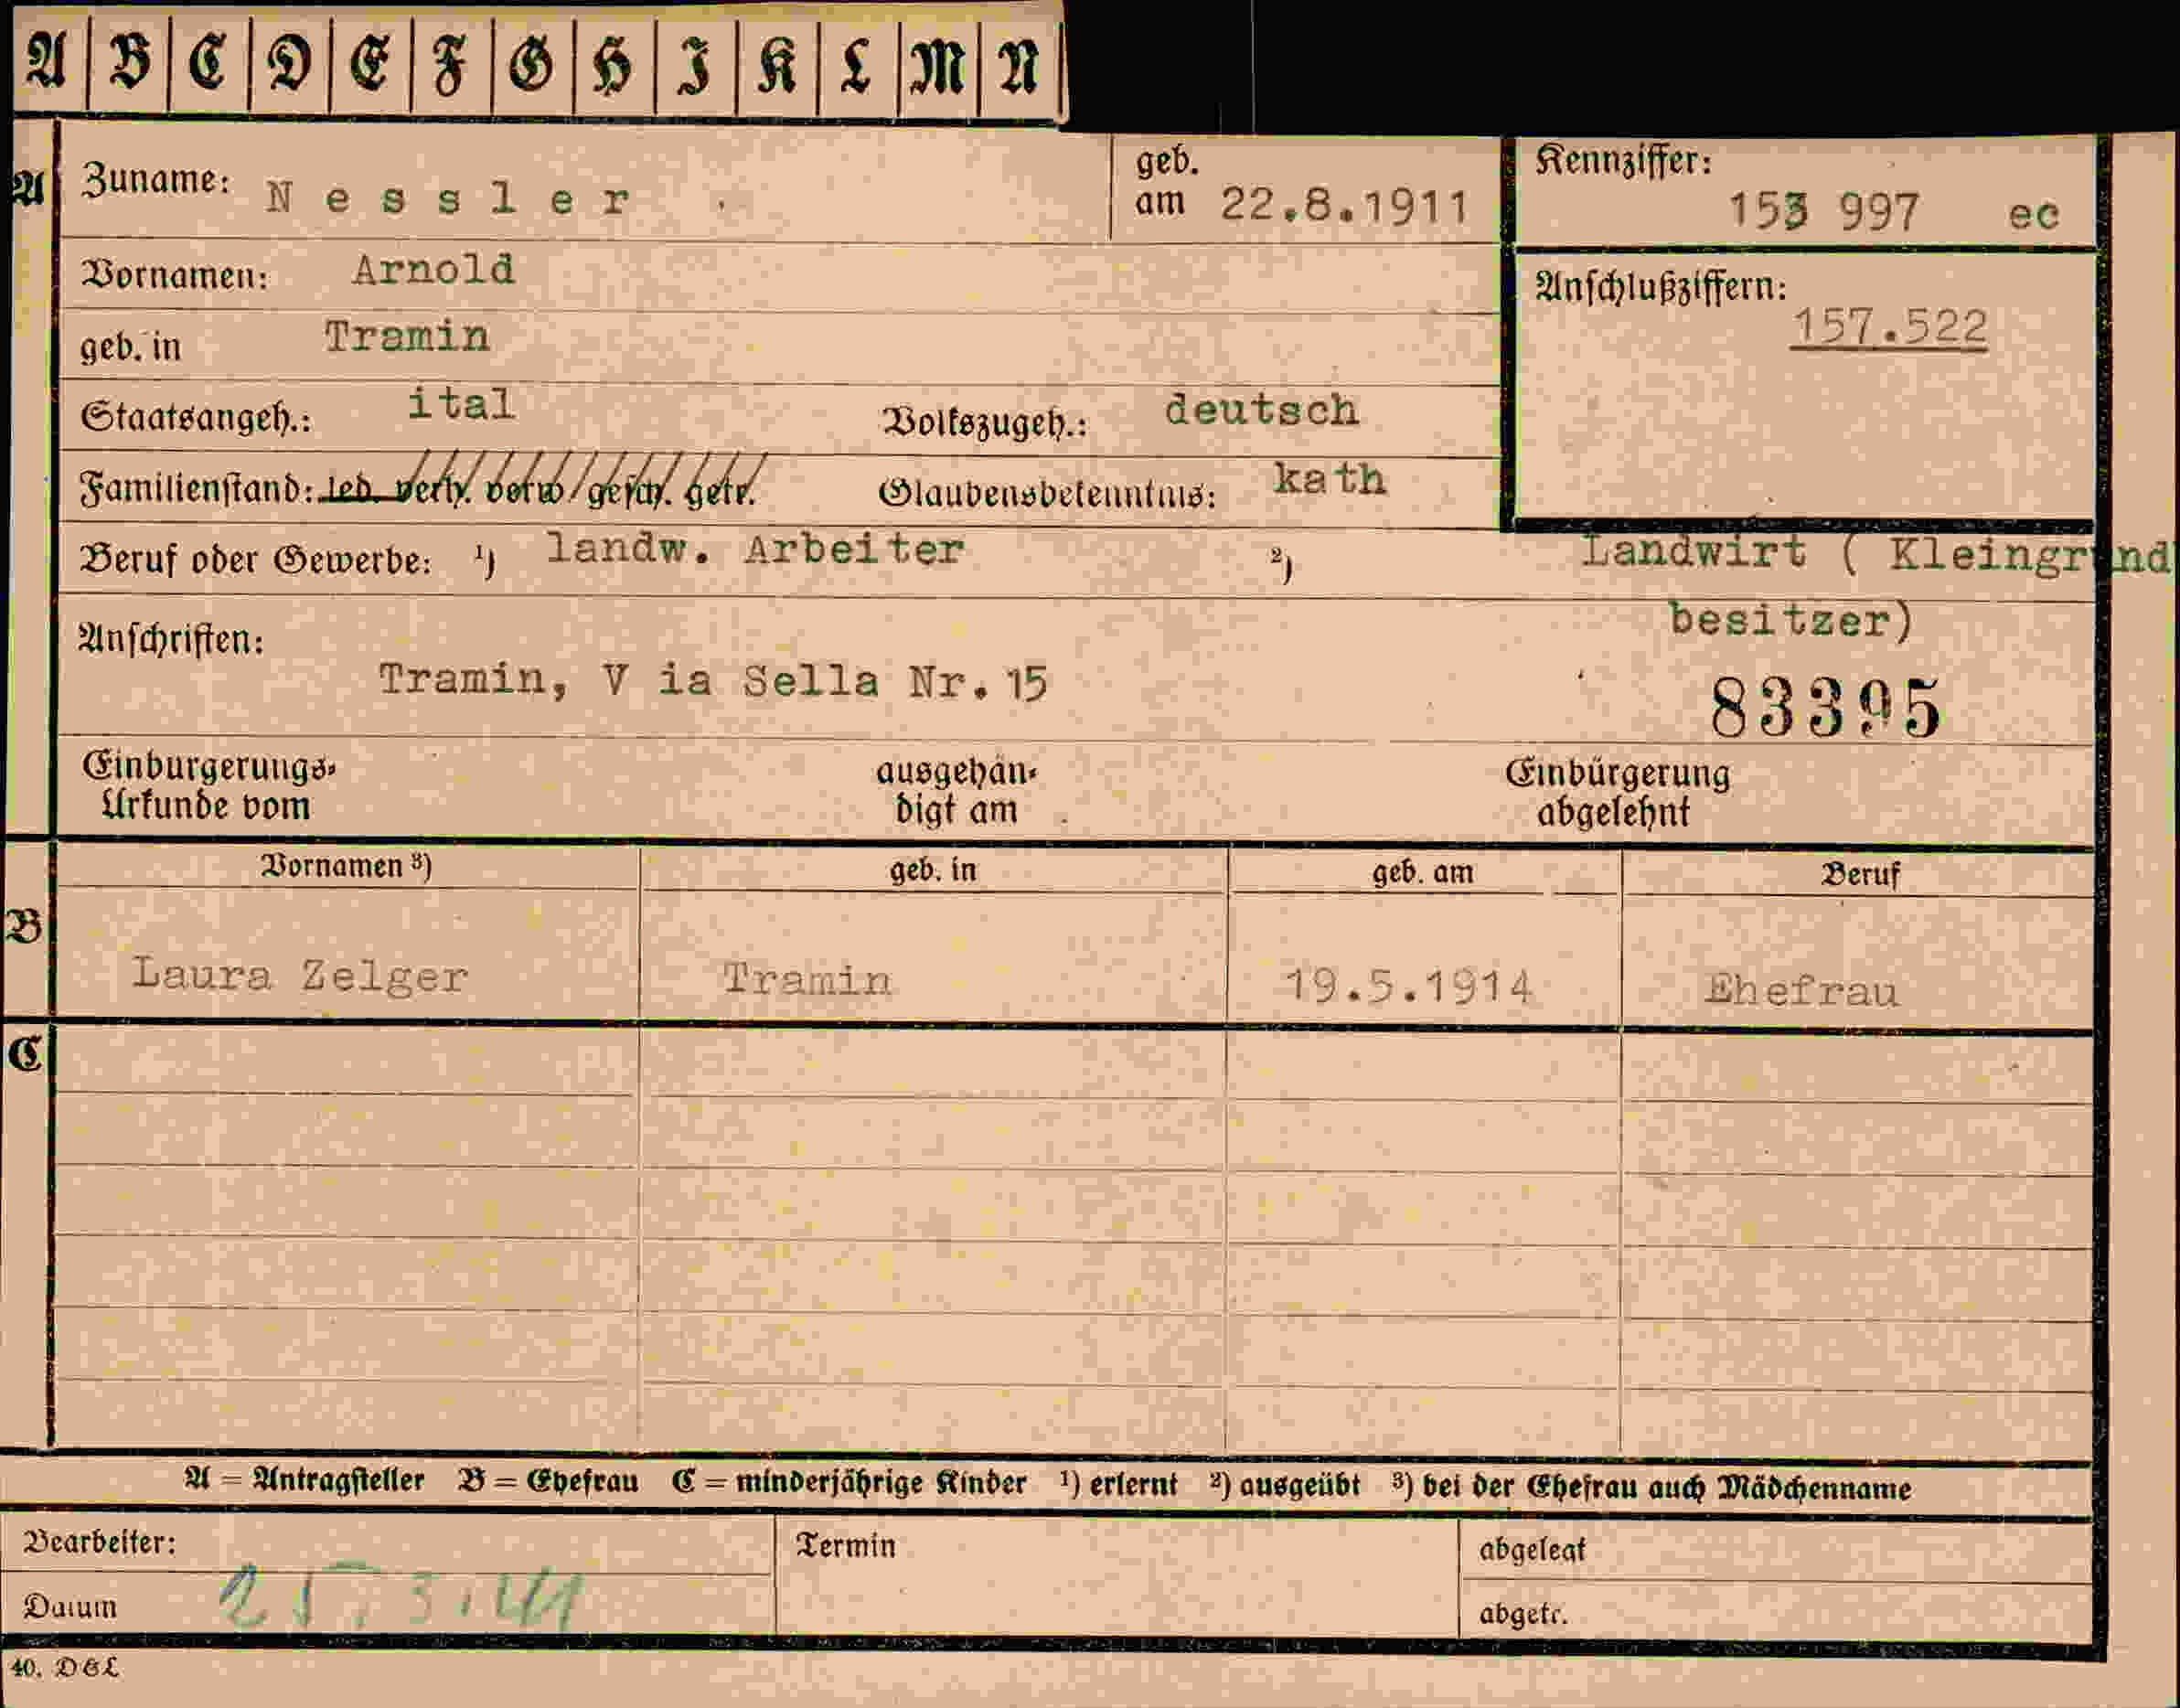 A B C D E F G H I K L M N
A Zuname: Nessler geb. am 22.8.1911 Kennziffer: 153 997 ec
Vornamen: Arnold
Anschlußziffern: 157.522
geb. in Tramin
Staatsangeh.: ital Volkszugeh.: deutsch
Familienstand: led. verh. verw. gesch. getr. Glaubensbekenntnis: kath
Beruf oder Gewerbe: 1) landw. Arbeiter 2) Landwirt ( Kleingrund
besitzer)
Anschriften:
Tramin, V ia Sella Nr. 15
83395
Einbürgerungs- ausgehän- Einbürgerung
Urkunde vom digt am abgelehnt
Vornamen 3) geb. in geb. am Beruf
B
Laura Zelger Tramin 19.5.1914 Ehefrau
C
A = Antragsteller B = Ehefrau C = minderjährige Kinder 1) erlernt 2) ausgeübt 3) bei der Ehefrau auch Mädchenname
Bearbeiter: Termin abgelegt
Datum 25.3.41 abgetr.
40. DGL